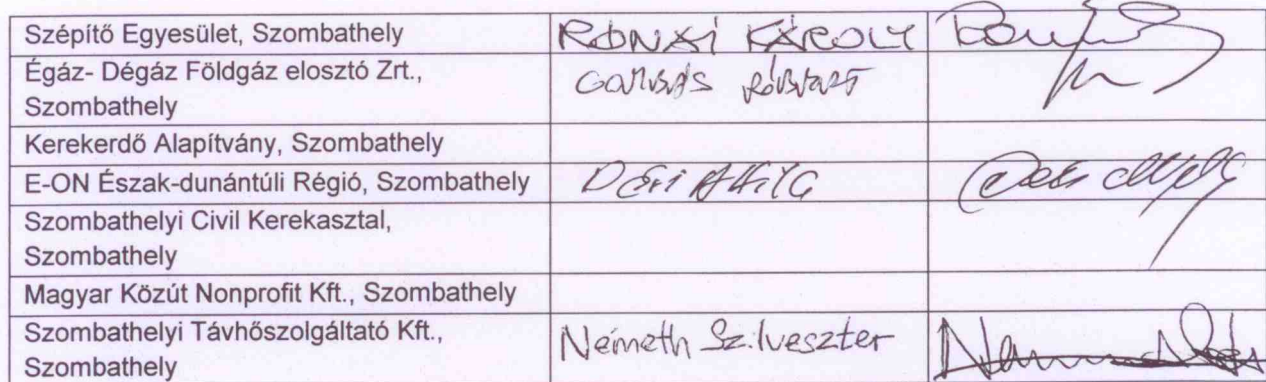 Szépítő Egyesület, Szombathely RÓNAI KÁROLY
Égáz- Dégáz Földgáz elosztó Zrt.,
Szombathely
Kerekerdő Alapítvány, Szombathely
E-ON Észak-dunántúli Régió, Szombathely Déri Attila
Szombathelyi Civil Kerekasztal,
Szombathely
Magyar Közút Nonprofit Kft., Szombathely
Szombathelyi Távhőszolgáltató Kft.,
Szombathely Németh Szilveszter